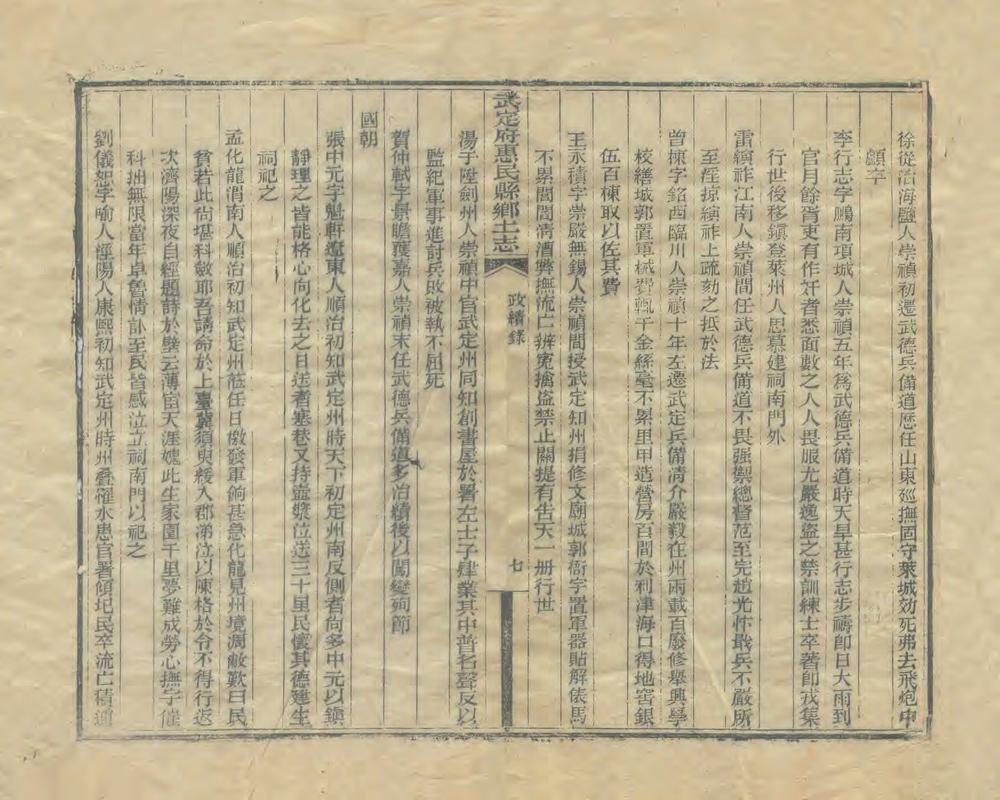 徐從治海鹽人崇禎初遷武德兵備道歷任山東巡撫固守萊城効死弗去飛炮中
顱卒
李行志字鵬南項城人崇禎五年爲武德兵備道時天旱甚行志步禱卽日大雨到
官月餘胥吏有作奸者悉面數之人人畏服尤嚴逸盜之禁訓練士卒著卽戎集
行世後移鎭登萊州人思慕建祠南門外
雷縯祚江南人崇禎間任武德兵備道不畏强禦總督范至完趙光忭戢兵不嚴所
至淫掠縯祚上疏劾之抵於法
曾棟字銘西臨川人崇禎十年左遷武定兵備淸介嚴毅在州兩載百廢修舉興學
校繕城郭置軍械費輒千金絲毫不累里甲造營房百間於利津海口得地窖銀
伍百棟取以佐其費
王永積字崇嚴無錫人崇禎間授武定知州捐修文廟城郭衙宇置軍器貼解俵馬
不累閭閻淸漕弊撫流亡辨寃擒盜禁止關提有告天一册行世
武定府惠民縣鄉土志
政績錄
七
湯子陞劍州人崇禎中官武定州同知創書屋於署左士子肄業其中普名聲反以
監紀軍事進討兵敗被執不屈死
賀仲軾字景瞻獲嘉人崇禎末任武德兵備道多治績後以闖變殉節
國朝
張中元字魁軒遼東人順治初知武定州時天下初定州南反側者尙多中元以鎭
靜理之皆能格心向化去之日送者塞巷又持壺漿泣送三十里民懷其德建生
祠祀之
孟化龍渭南人順治初知武定州涖任日檄發軍餉甚急化龍見州境凋敝歎曰民
貧若此尙堪科斂耶吾請命於上臺冀須臾緩入郡涕泣以陳格於令不得行返
次濟陽深夜自經題詩於壁云薄宦天涯媿此生家園千里夢難成勞心撫字催
科拙無限當年卓魯情訃至民皆感泣立祠南門以祀之
劉儀恕字喻人涇陽人康熙初知武定州時州疊罹水患官署傾圮民卒流亡積逋